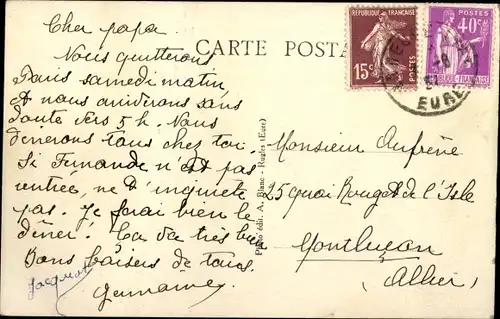 CARTE POSTA
REPUBLIQUE FRANÇAISE
15c
POSTES
POSTES
40c
EURE
Cher papa
Nous quitterons
Paris samedi matin,
et nous arriverons sans
doute vers 5 h. Nous
dînerons tous chez toi.
Si Fernande n'est pas
rentrée, ne t'inquiete
pas. Je ferai bien le
dîner! Ca va très bien
Bons baisers de tous.
Germaine
Jacques
Photo édit. A. Blanc - Rugles (Eure)
Monsieur Aufrère
25 quai Rouget de l'Isle
Montluçon
(Allier)